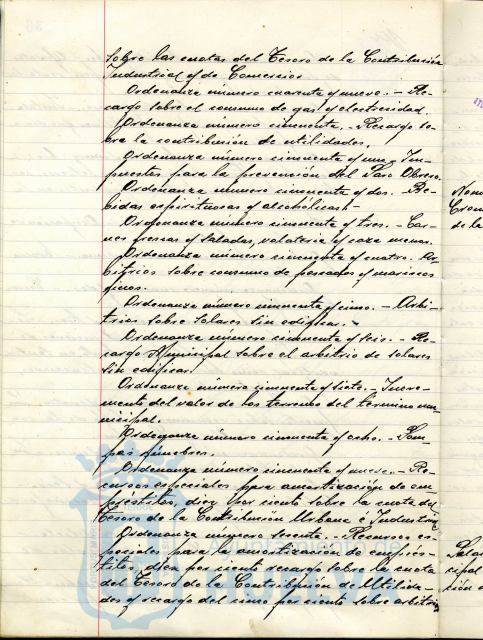 sobre las cuotas del Tesoro de la Contribución
Industrial y de Comercio.
Ordenanza número cuarenta y nueve. - Re-
cargo sobre el consumo de gas y electricidad.
Ordenanza número cincuenta. - Recargo so-
bre la contribución de utilidades.
Ordenanza número cincuenta y uno. Im-
puestos para la prevención del Paro Obrero.
Ordenanza número cincuenta y dos. - Be-
bidas espirituosas y alcohólicas. -
Ordenanza número cincuenta y tres. - Car-
nes frescas y saladas, volatería y caza menor.
Ordenanza número cincuenta y cuatro. Ar-
bitrios sobre consumo de pescados y mariscos
finos.
Ordenanza número cincuenta y cinco. - Arbi-
trios sobre solares sin edificar.
Ordenanza número cincuenta y seis. - Re-
cargo Municipal sobre el arbitrio de solares
sin edificar.
Ordenanza número cincuenta y siete. - Incre-
mento del valor de los terrenos del término mu-
nicipal.
Ordenanza número cincuenta y ocho. - Pom-
pas fúnebres.
Ordenanza número cincuenta y nueve. - Re-
cursos especiales para amortización de em-
préstitos, diez por ciento sobre la cuota del
Tesoro de la Contribución Urbana e Industrial
Ordenanza número sesenta. - Recursos es-
peciales para la amortización de emprés-
titos, diez por ciento recargo sobre la cuota
del Tesoro de la Contribución de Utilida-
des y recargo del cinco por ciento sobre arbitrios
de la
cipal
HUELVA